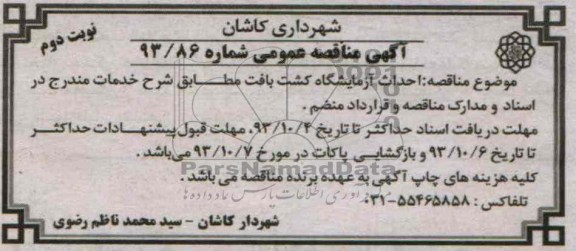 شهرداری کاشان
نوبت دوم
آگهی مناقصه عمومی شماره ۹۳/۸۶
موضوع مناقصه: احداث آزمایشگاه کشت بافت مطابق شرح خدمات مندرج در
اسناد و مدارک مناقصه و قرارداد منضم.
مهلت دریافت اسناد حداکثر تا تاریخ ۹۳/۱۰/۴، مهلت قبول پیشنهادات حداکثر
تا تاریخ ۹۳/۱۰/۶ و بازگشایی پاکات در مورخ ۹۳/۱۰/۷ می‌باشد.
ParsNamadData
کلیه هزینه های چاپ آگهی به عهده برنده مناقصه می باشد.
اطلاعات پارس نماد داده ها
تلفاکس: ۵۵۴۶۵۸۵۸-۰۳۱
شهردار کاشان - سید محمد ناظم رضوی